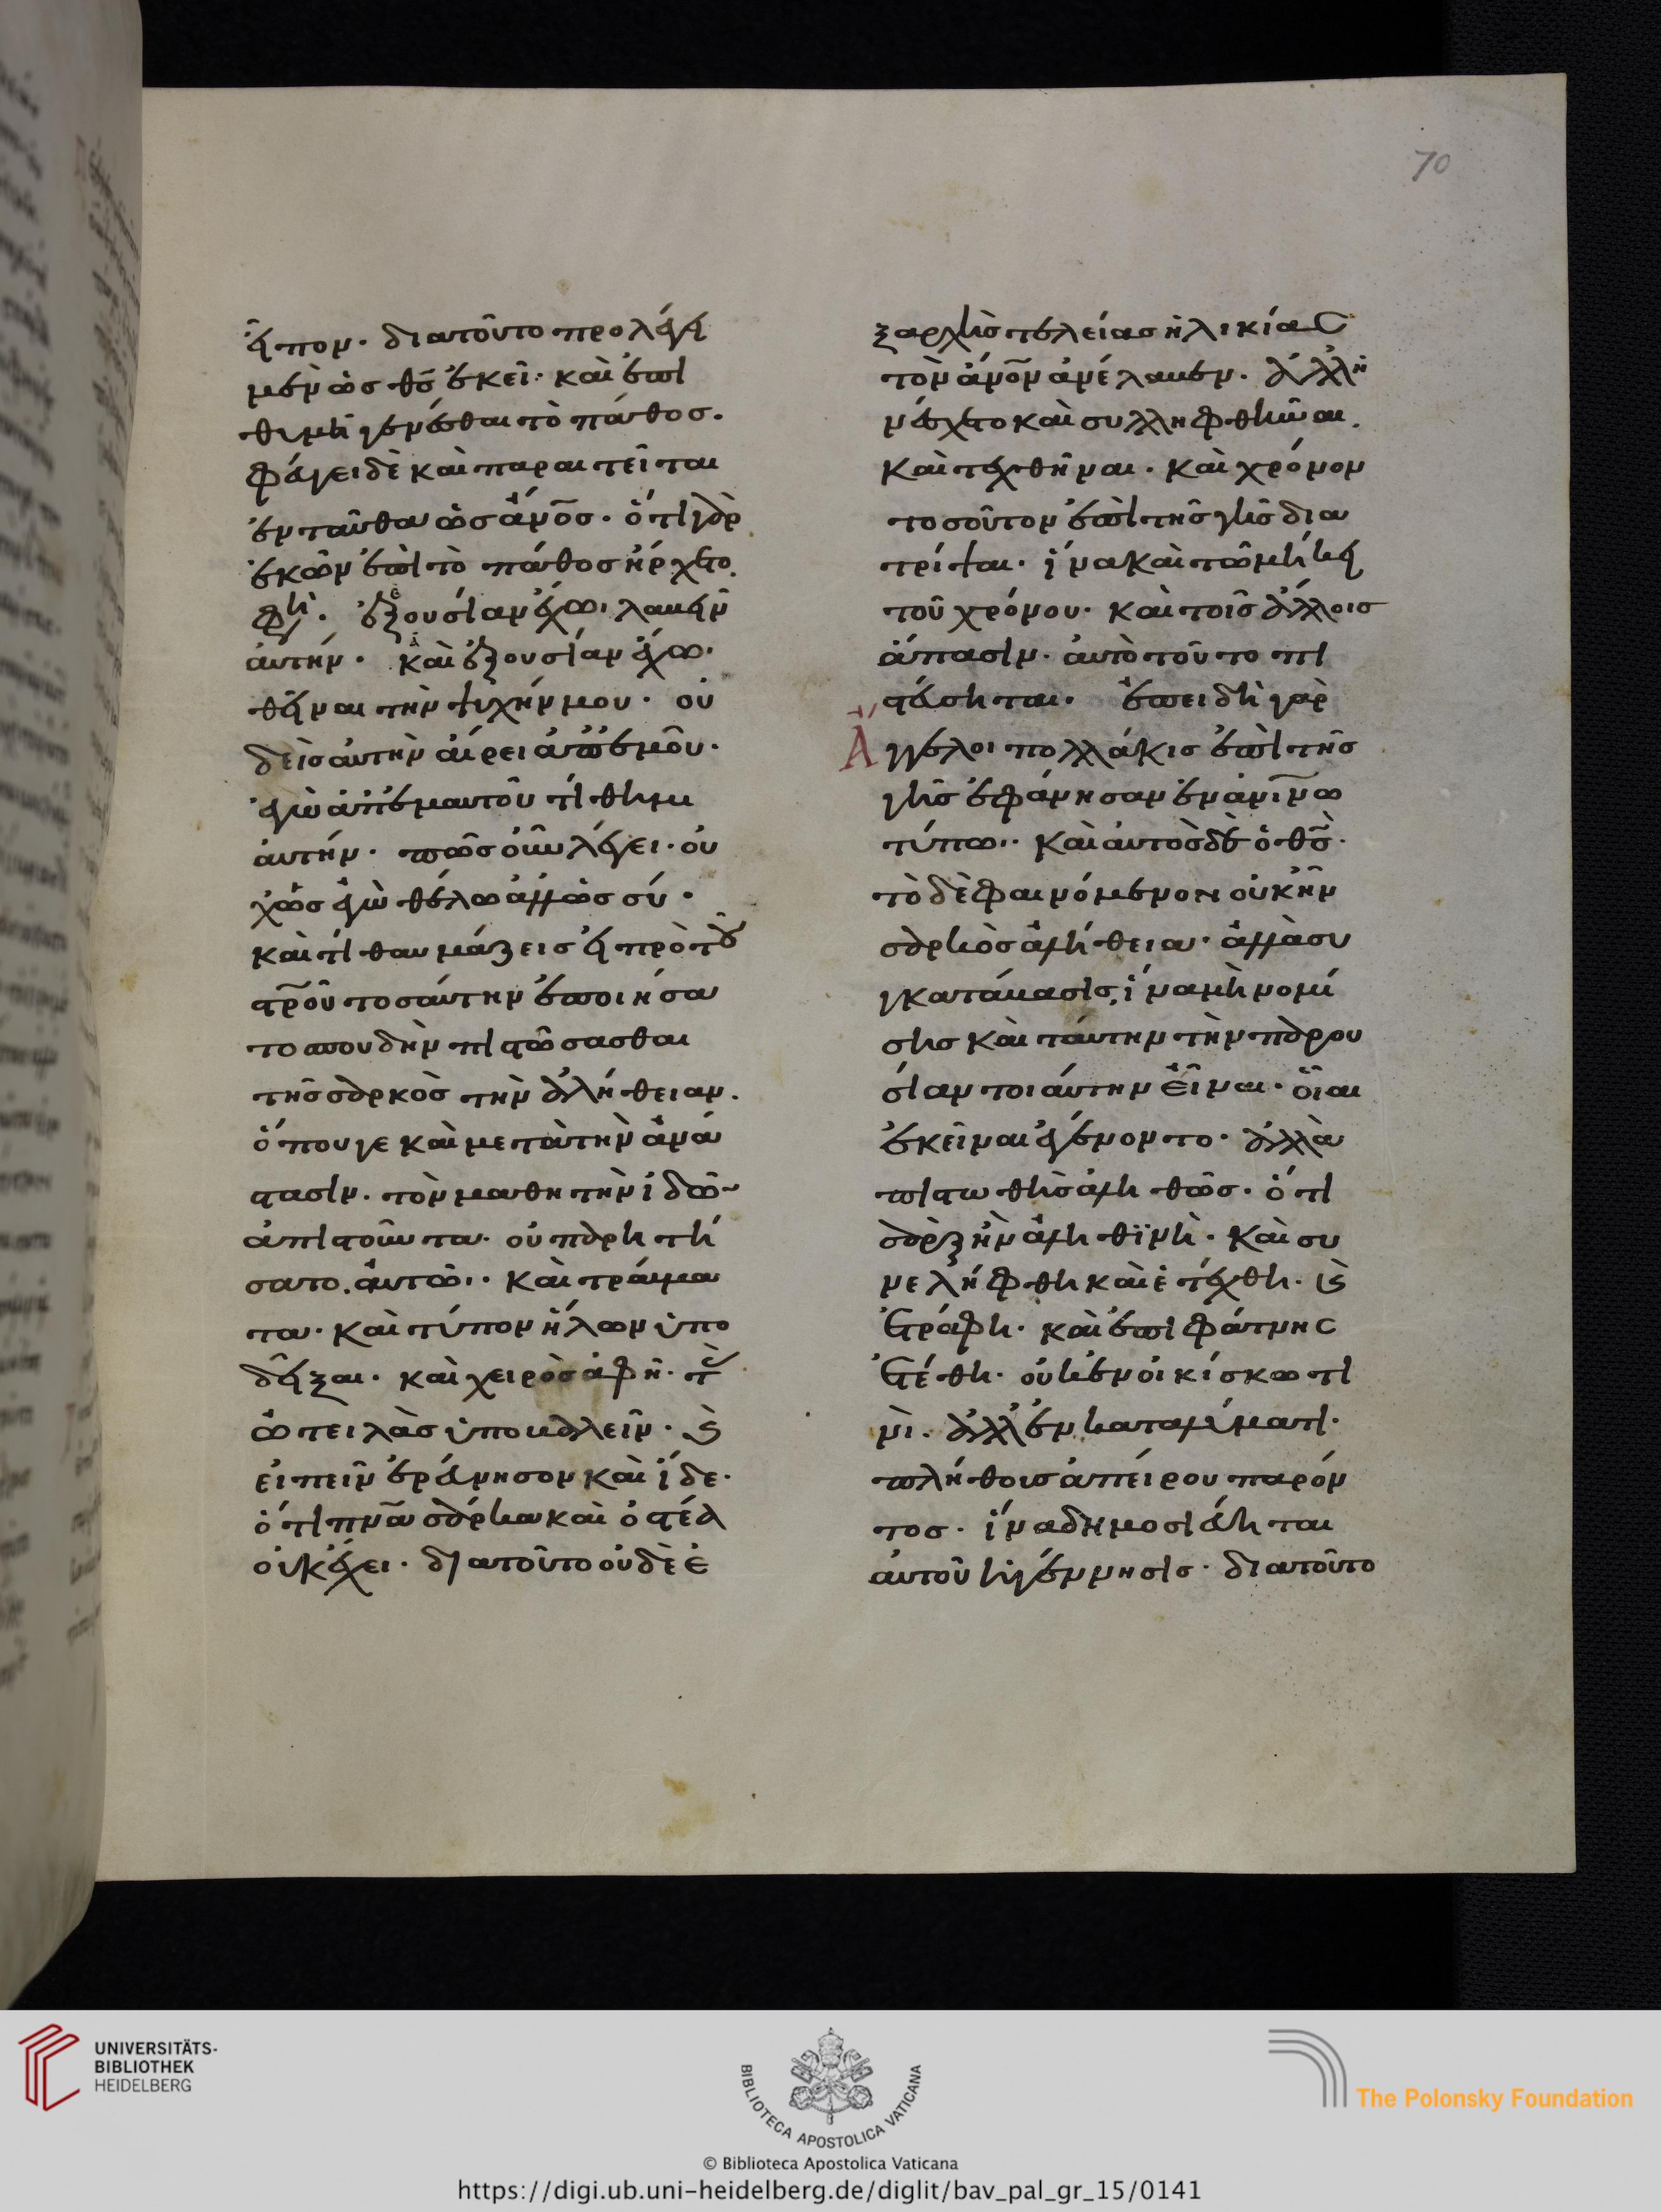 70
εἶπον. διατοῦτο προλέγει
μὲν ὡς θς ἐκεῖ. καὶ ἐπι
θυμεῖ γενέσθαι τὸ πάθος.
φεύγει δὲ καὶ παραιτεῖται
ἐνταῦθα ὡς ἄνος. ὅτι γὰρ
ἑκὼν ἐπὶ τὸ πάθος ἤρχετο.
φη. ἐξουσίαν ἔχω λαβεῖν
αὐτήν. καὶ ἐξουσίαν ἔχω
θεῖναι τὴν ψυχήν μου. οὐ
δεὶς αὐτὴν αἴρει ἀπ' ἐμοῦ.
ἐγὼ ἀπ' ἐμαυτοῦ τίθημι
αὐτήν. πῶς οὖν λέγει. οὐ
χ ὡς ἐγὼ θέλω ἀλλ' ὡς σύ.
καὶ τί θαυμάζεις εἰ πρὸ τοῦ
στρου τοσαύτην ἐποιήσα
το σπουδὴν πιστώσασθαι
τῆς σαρκὸς τὴν ἀλήθειαν.
ὅπου γε καὶ μετὰ τὴν ἀνά
στασιν. τὸν μαθητὴν ἰδὼν
ἀπιστοῦντα. οὐ παρῃτή
σατο αὐτῶ. καὶ τραύμα
τα. καὶ τύπον ἥλων ὑπο
δεῖξαι. καὶ χειρὸς ἁφῆ. τὰς
ὠτειλὰς ὑποβαλεῖν. καὶ
εἰπεῖν ἐρεύνησον καὶ ἴδε.
ὅτι πνα σάρκα καὶ ὀστέα
οὐκ ἔχει. διατοῦτο οὐδὲ ἐ
ξαρχῆς τελείας ἡλικίας
τὸν ἄνον ἀνέλαβεν. ἀλλ' ἠ
νέσχετο καὶ συλληφθῆναι.
καὶ τεχθῆναι. καὶ χρόνον
τοσοῦτον ἐπὶ τῆς γῆς δια
τρίψαι. ἵνα καὶ τῶ μήκει
τοῦ χρόνου. καὶ τοῖς ἄλλοις
ἅπασιν. αὐτὸ τοῦτο πι
στώσηται. ἐπειδὴ γὰρ
Ἄγγελοι πολλάκις ἐπὶ τῆς
γῆς ἐφάνησαν ἐν ἀνινω
τύπω. καὶ αὐτὸς δὲ ὁ θς.
τὸ δὲ φαινόμενον οὐκ ἦν
σαρκὸς ἀλήθεια. ἀλλὰ συ
γκατάβασις, ἵνα μὴ νομί
σης καὶ ταύτην τὴν παρου
σίαν τοιαύτην εἶναι. οἷαι
ἐκεῖναι ἐγένοντο. ἀλλὰ
πιστωθῆς ἀληθῶς. ὅτι
σὰρξ ἦν ἀληθϊνὴ. καὶ συ
νελήφθη καὶ ἐτέχθη. καὶ
ἐτράφη. καὶ ἐπὶ φάτνης
ἐτέθη. οὐκ ἐν οἰκίσκω τι
νὶ. ἀλλ' ἐν καταλύματι.
πλήθους ἀπείρου παρόν
τος. ἵνα δημοσιεύηται
αὐτοῦ ἡ γέννησις. διατοῦτο
UNIVERSITÄTS-
BIBLIOTHEK
HEIDELBERG
BIBLIOTECA APOSTOLICA VATICANA
The Polonsky Foundation
© Biblioteca Apostolica Vaticana
https://digi.ub.uni-heidelberg.de/diglit/bav_pal_gr_15/0141